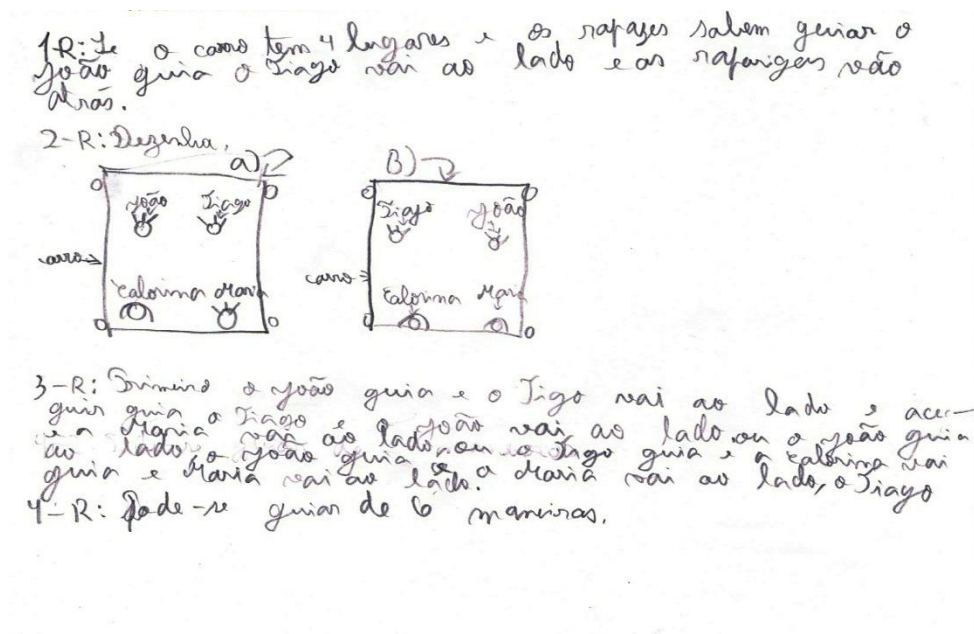 1-R: Se o carro tem 4 lugares e os rapazes sabem guiar o
João guia o Tiago vai ao lado e as raparigas vão
atrás.
2-R: Dezenha.
a)
B)
João Tiago
Tiago João
carro
carro
Catarina Maria
Catarina Maria
3-R: Primeiro o João guia e o Tigo vai ao lado e a
guir guia o Tiago e o João vai ao lado ou o João guia
e a Maria vai ao lado, ou o Tigo guia e a Catarina vai
ao lado, o João guia e a Maria vai ao lado, o Tiago
guia e Maria vai ao lado.
4-R: Pode-se guiar de 6 maneiras.